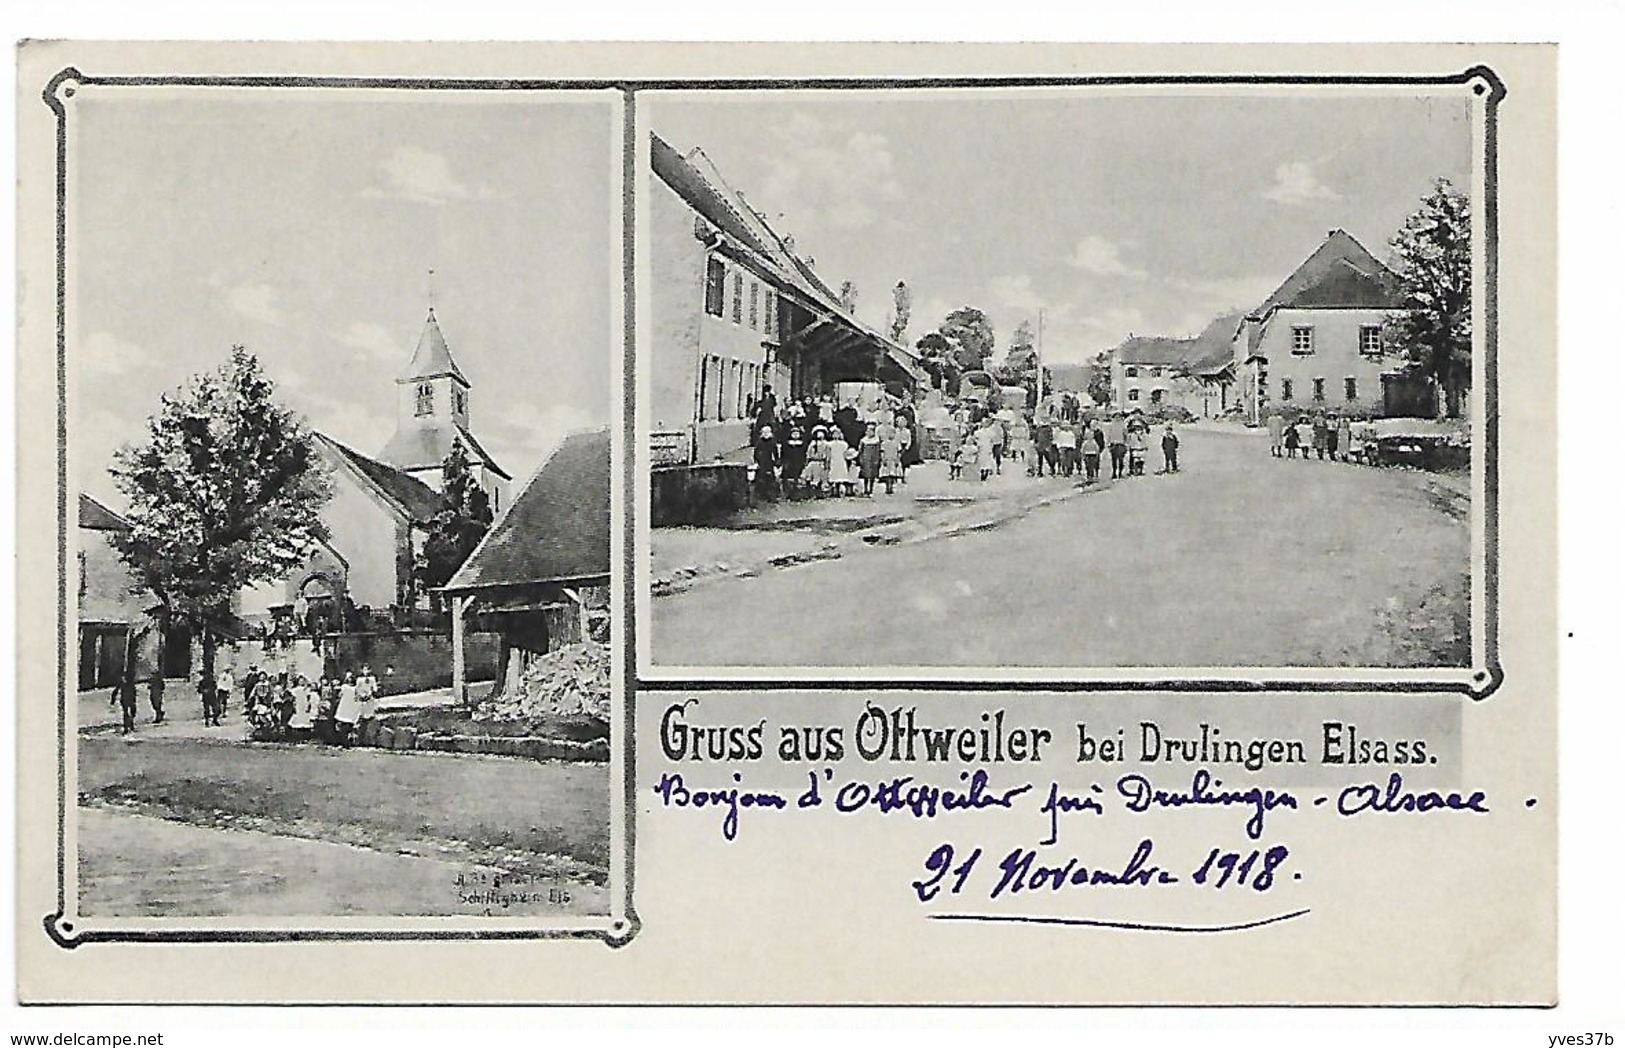 Gruss aus Ottweiler bei Drulingen Elsass.
Bonjour d'Ottweiler près Drulingen - Alsace.
21 Novembre 1918.
Schiltigheim Els
delcampe.net
yves37b